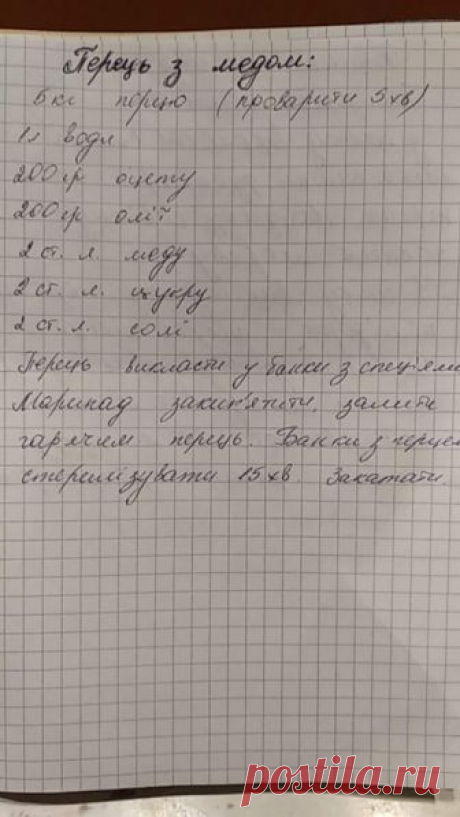 Перець з медом:
5кг перцю (проварити 5хв)
1л води
200гр оцету
200гр олії
2 ст. л. меду
2 ст. л. цукру
2 ст. л. солі
Перець викласти у банки з спеціями
Маринад закип'ятити, залити
гарячим перець. Банки з перцем
стерилізувати 15хв. Закатати.
postila.ru